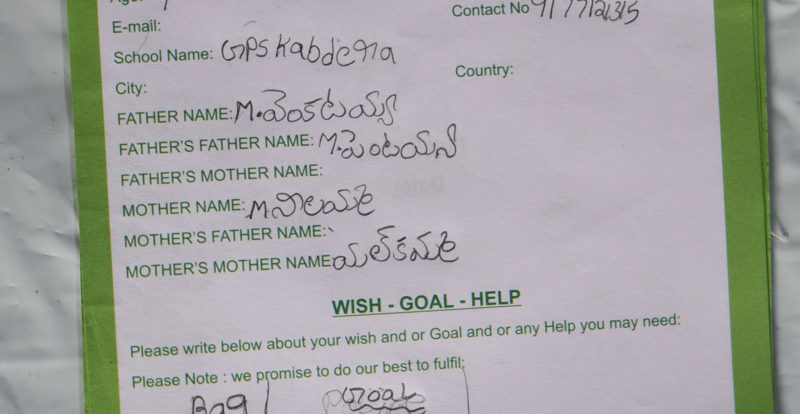 Contact No
E-mail:
School Name: GPS Kabdena
City:
Country:
FATHER NAME: M. వెంకటయ్య
FATHER'S FATHER NAME: M. పెంటయ్య
FATHER'S MOTHER NAME:
MOTHER NAME: M
MOTHER'S FATHER NAME:
MOTHER'S MOTHER NAME:
WISH - GOAL - HELP
Please write below about your wish and or Goal and or any Help you may need:
Please Note : we promise to do our best to fulfil:
Bag